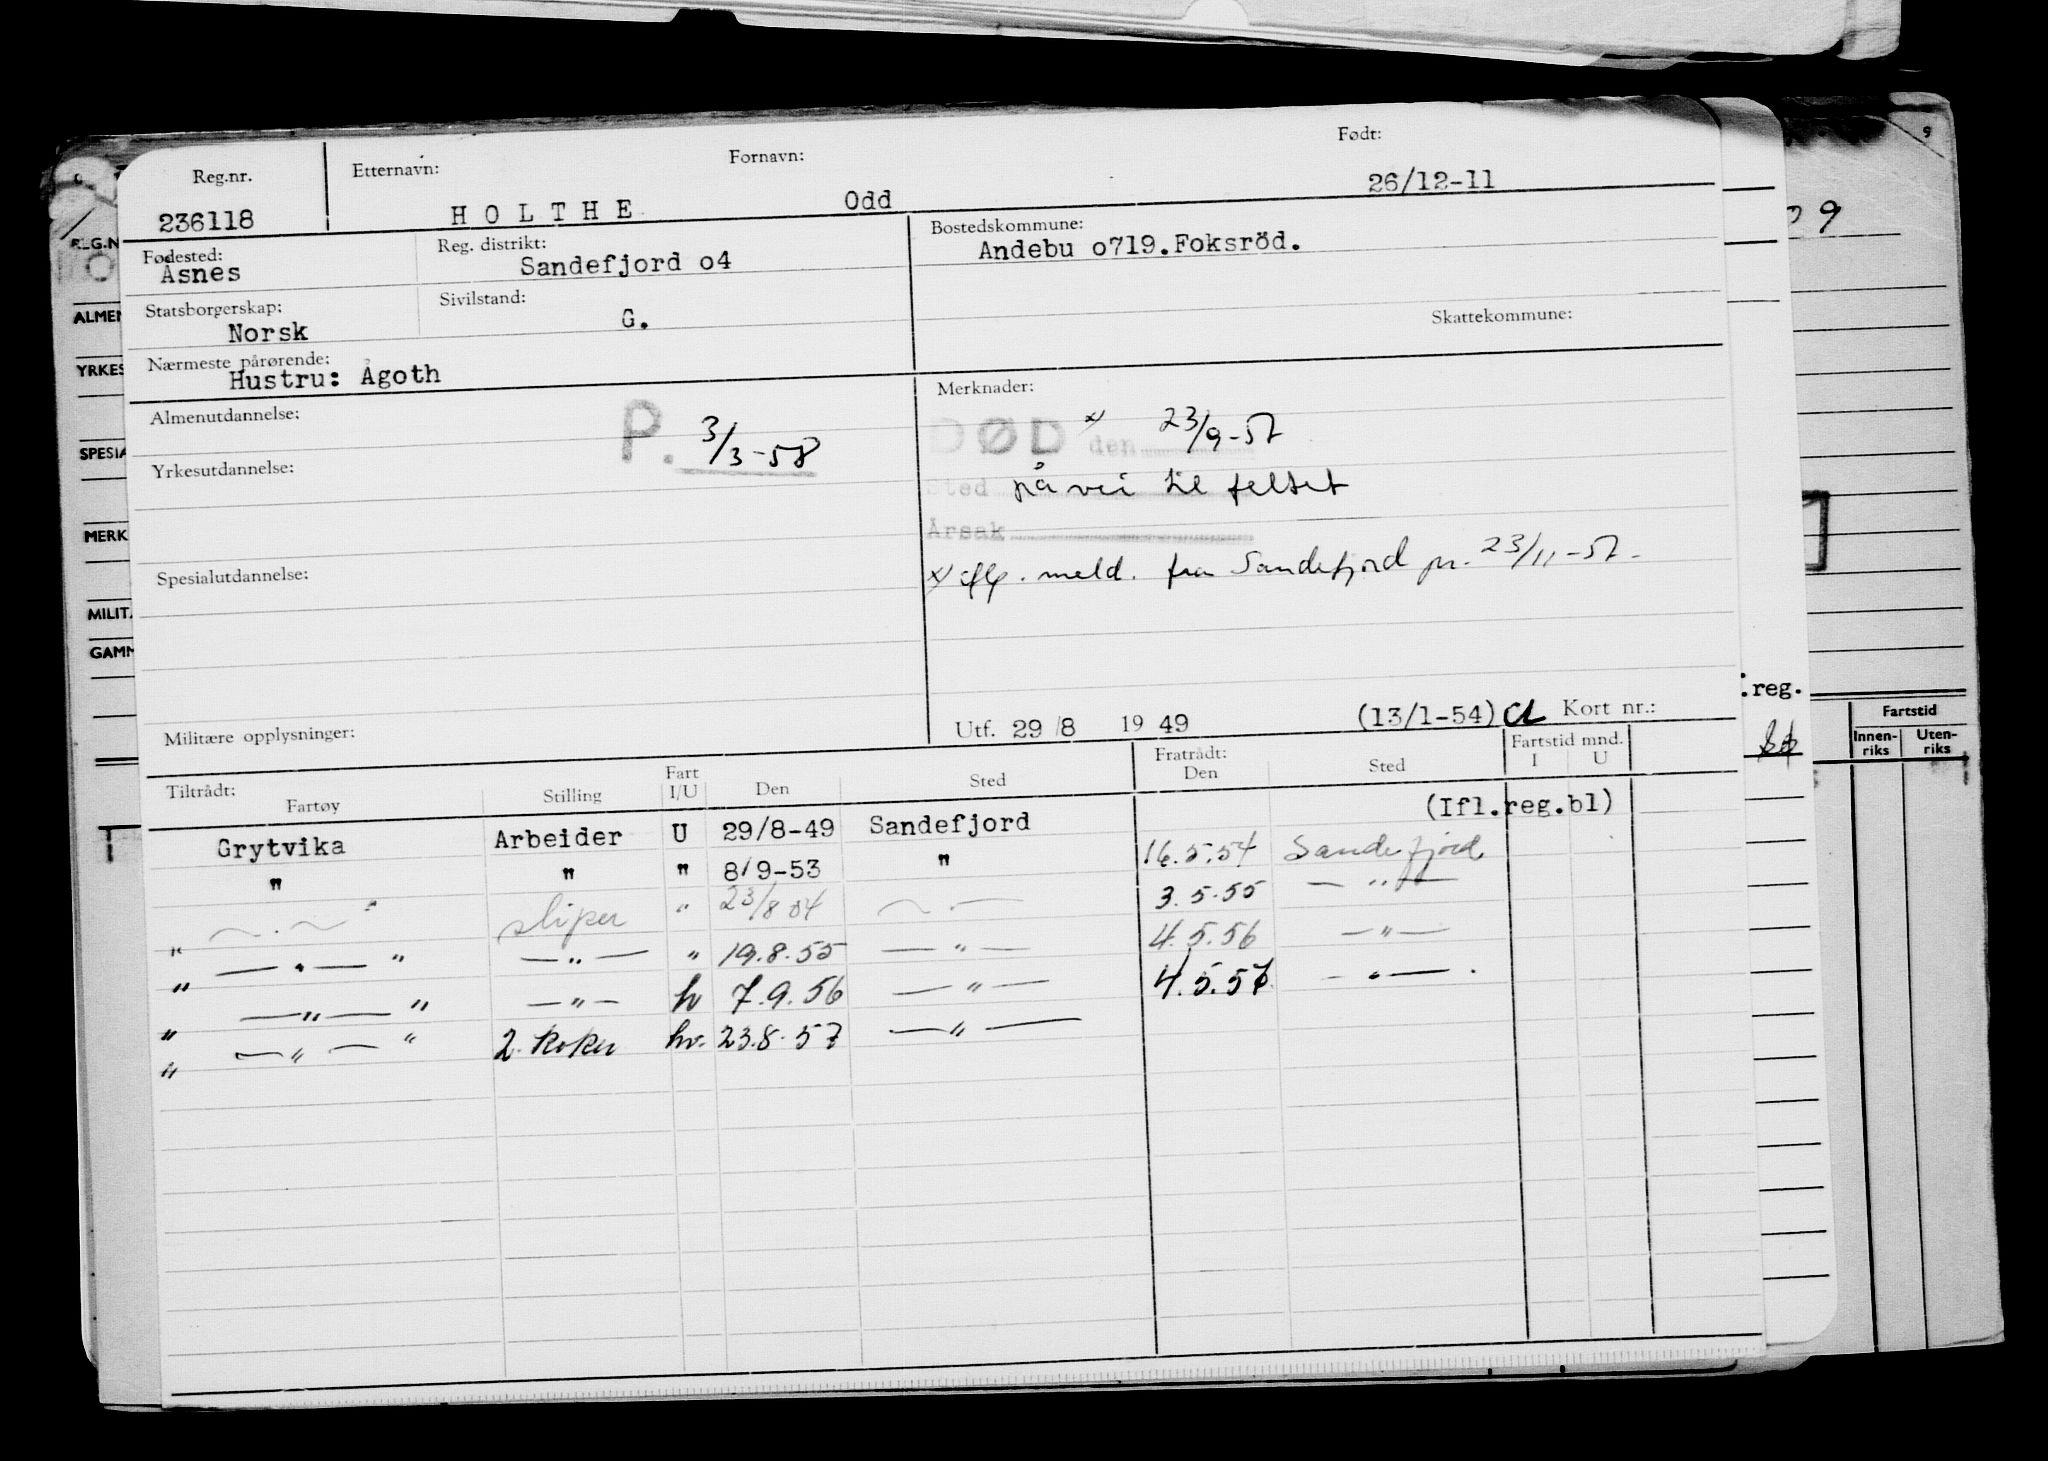 Reg.nr. Etternavn: Fornavn: Født:
236118 HOLTHE Odd 26/12-11
Fødested: Reg. distrikt: Bostedskommune:
Åsnes Sandefjord o4 Andebu o719.Foksröd.
Statsborgerskap: Sivilstand:
Norsk G. Skattekommune:
Nærmeste pårørende:
Hustru: Ågoth
Almenutdannelse: Merknader:
P. 3/3-58 DØD x) den 23/9-57
Yrkesutdannelse:
Sted på vei til feltet
Årsak
Spesialutdannelse: x) iflg. meld. fra Sandefjord pr. 23/11-57.
Militære opplysninger: Utf. 29/8 1949 (13/1-54) Kort nr.:
Tiltrådt: Fratrådt: Fartstid mnd.
Fartøy Stilling Fart I/U Den Sted Den Sted I U
(Ifl.reg.bl)
Grytvika Arbeider U 29/8-49 Sandefjord
" " " 8/9-53 " 16.5.54 Sandefjord
" — . — " sliper " 23/8 54 — . — 3.5.55 — " —
" — " — " — " — " 19.8.55 — " — 4.5.56 — " —
" — " — " — " — h 7.9.56 — " — 4.5.57 — " — .
" — " — " 2. koker hv. 23.8.57 — " —
REG.N
ALMEN
YRKES
SPESIA
MERK
MILITÆ
GAMM
9
9
.reg.
Fartstid
Innen-riks Uten-riks